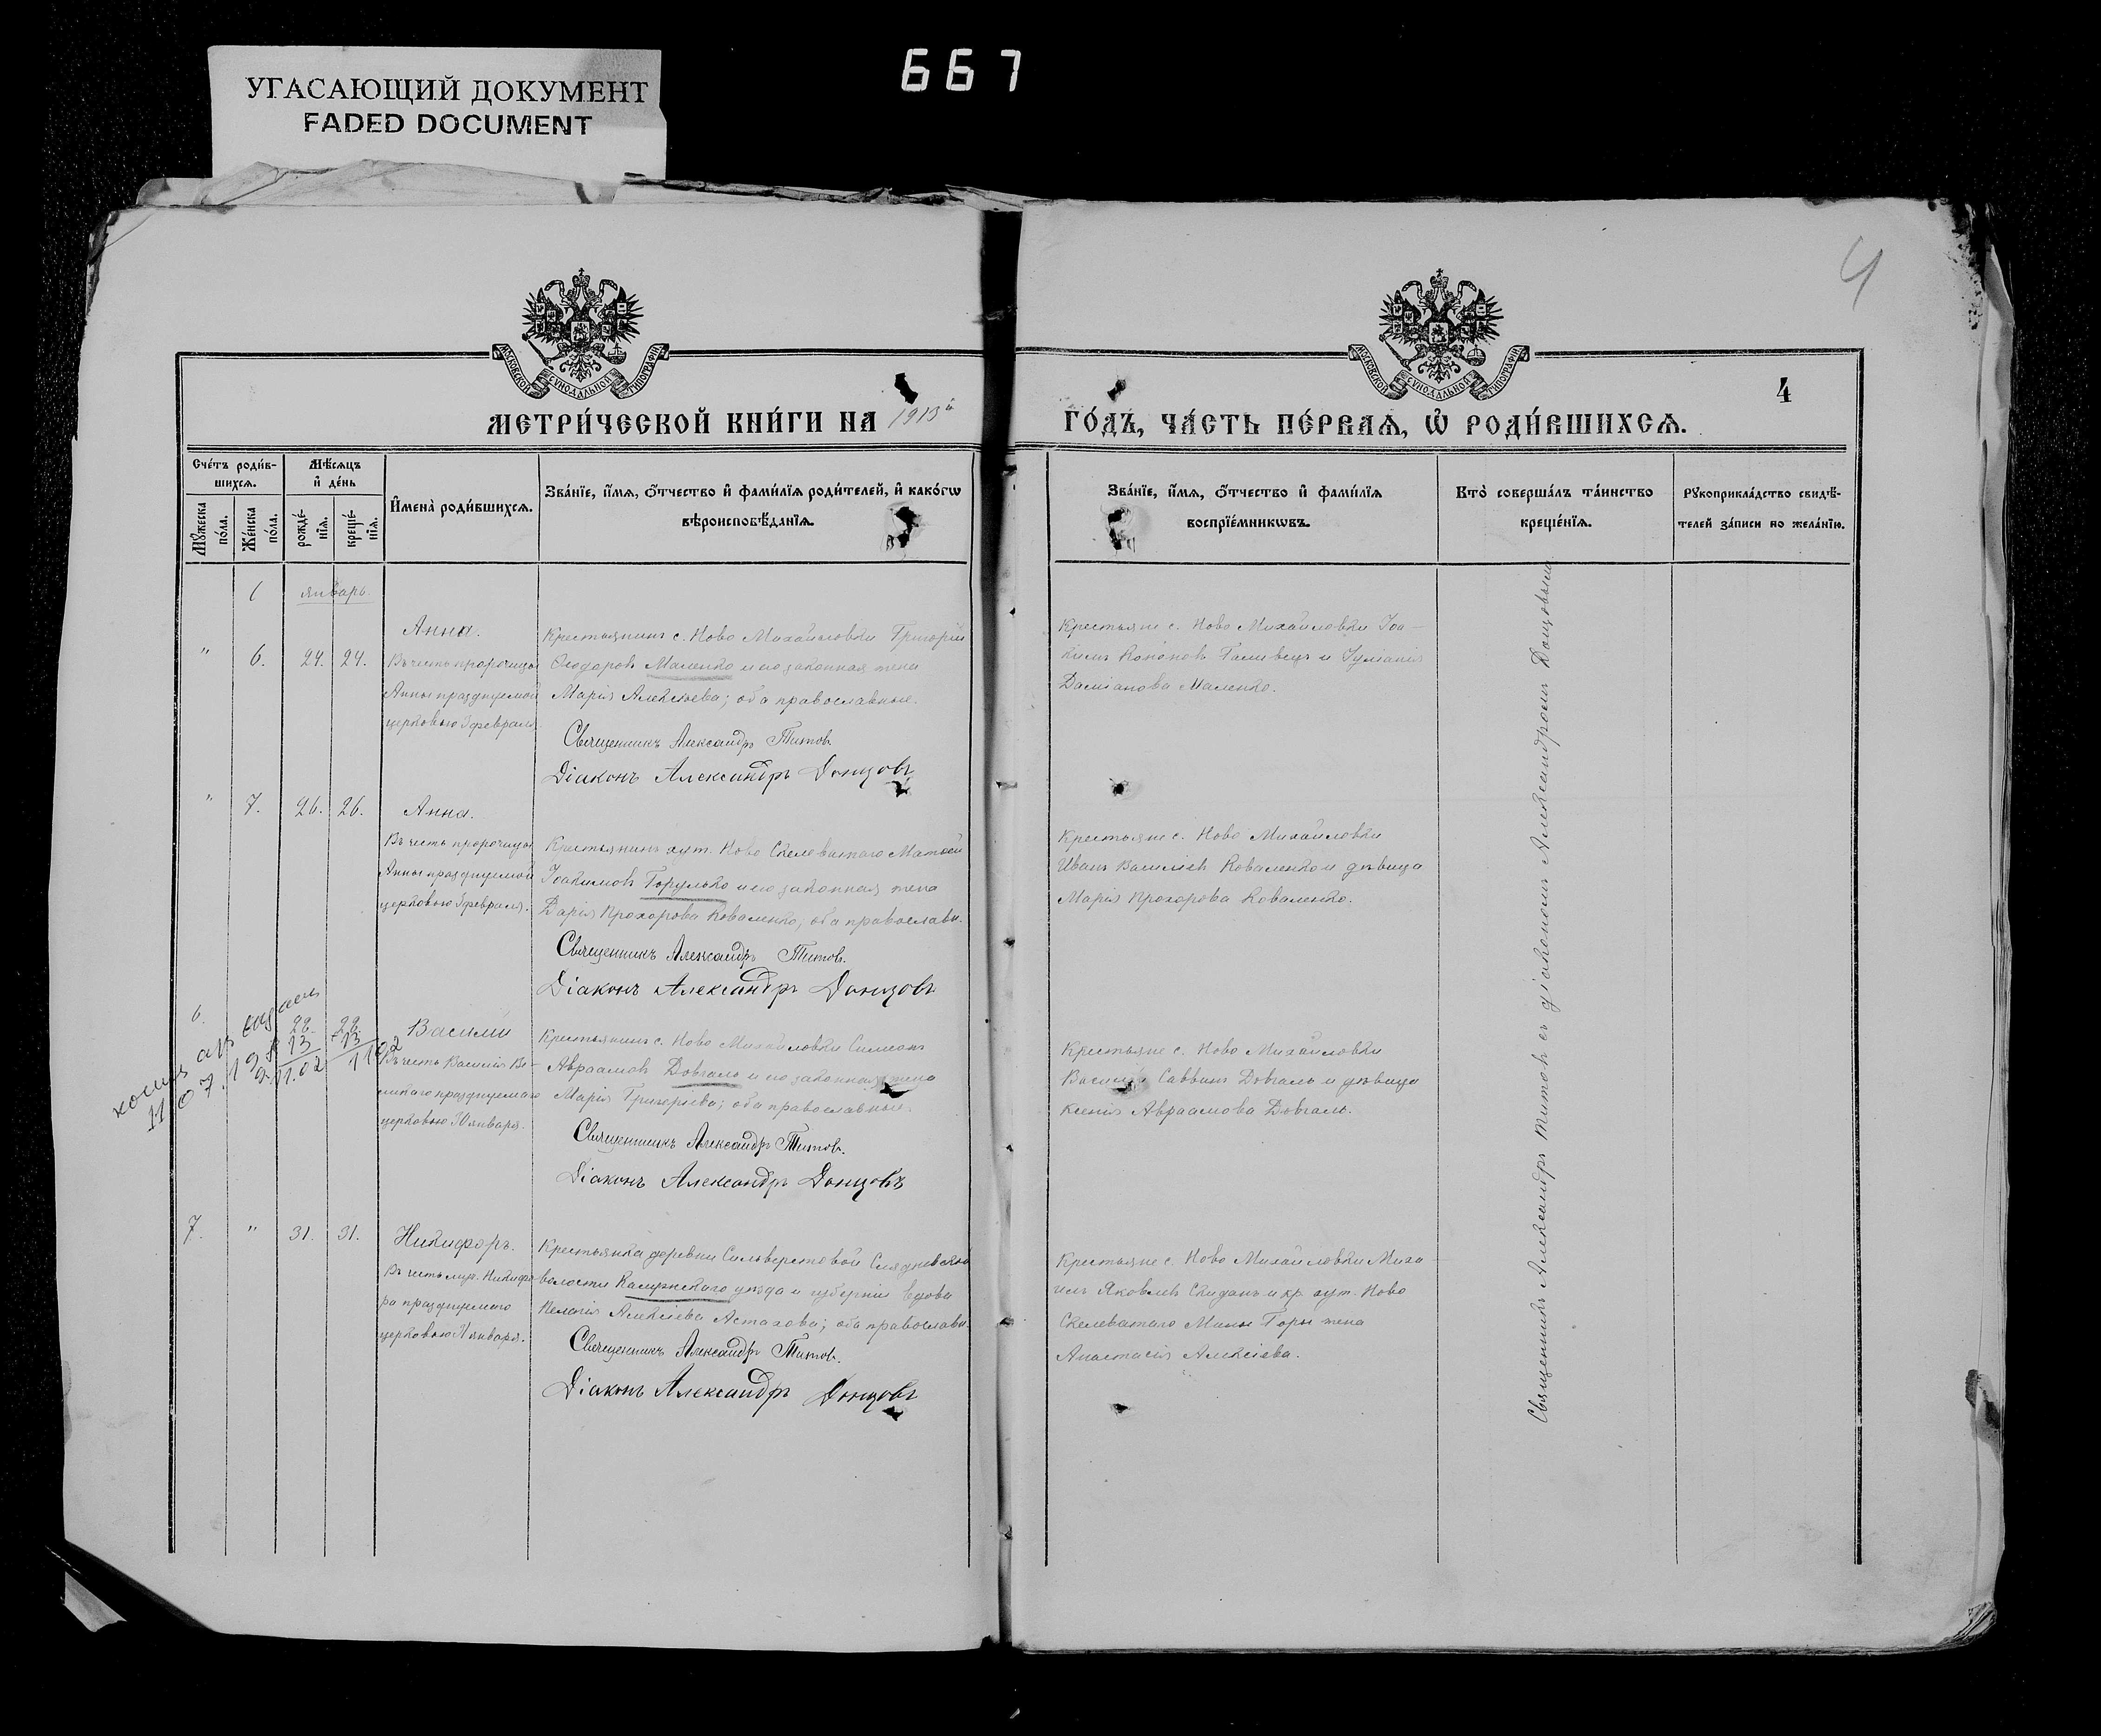 667
УГАСАЮЩИЙ ДОКУМЕНТ
FADED DOCUMENT
4
МОСКОВСКОЙ СѴНОДАЛЬНОЙ ТИПОГРАФІИ
МОСКОВСКОЙ СѴНОДАЛЬНОЙ ТИПОГРАФІИ
4
МЕТРИ́ЧЕСКОЙ КНИ́ГИ НА 1913й
ГО́ДЪ, ЧА́СТЬ ПЕ́РВАѦ, Ѽ РОДИ́ВШИХСѦ.
Сче́тъ роди́в-
шихсѧ.
Мꙋ́жеска по́ла.
Же́нска по́ла.
Мѣ́сѧцъ
и҆ де́нь
рожде́-
нїѧ.
креще́-
нїѧ.
И҆мена̀ роди́вшихсѧ.
Зва́нїе, и҆́мѧ, о҆́тчество и҆ фами́лїѧ роди́телей, и҆ како́гѡ
вѣроисповѣ́данїѧ.
Зва́нїе, и҆́мѧ, о҆́тчество и҆ фами́лїѧ
воспрїе́мникѡвъ.
Кто̀ соверша́лъ та́инство
креще́нїѧ.
Рꙋкоприкла́дство свидѣ́-
телей за́писи по жела́нїю.
1 январь.
" 6. 24. 24.
Анна.
Въ честь пророчицы
Анны празднуемой
церковью 3 февраля.
Крестьянинъ с. Ново Михайловки Григорій
Ѳеодоровъ Маленко и его законная жена
Марія Алексѣева; оба православные.
Священникъ Александръ Титовъ
Діаконъ Александръ Донцовъ
Крестьяне с. Ново Михайловки Іоа-
кимъ Кононовъ Галивецъ и Іуліанія
Даміанова Маленко.
" 7. 26. 26.
Анна.
Въ честь пророчицы
Анны празднуемой
церковью 3 февраля.
Крестьянинъ хут. Ново Скелеватаго Матѳей
Іоакимовъ Горулько и его законная жена
Дарія Прохорова Коваленко; оба православн.
Священникъ Александръ Титовъ.
Діаконъ Александръ Донцовъ
Крестьяне с. Ново Михайловки
Иванъ Васильевъ Коваленко и дѣвица
Марія Прохорова Коваленко.
6. 29. 29.
13 13
11.02 1102
11 07.19
Василій
Въ честь Василія Ве-
ликаго празднуемаго
церковью 30 января.
Крестьянинъ с. Ново Михайловки Симеонъ
Авраамовъ Довгаль и его законная жена
Марія Григорьева; оба православные.
Священникъ Александръ Титовъ.
Діаконъ Александръ Донцовъ
Крестьяне с. Ново Михайловки
Василій Саввинъ Довгаль и дѣвица
Ксенія Авраамова Довгаль.
7. " 31. 31.
Никифоръ.
Въ честь муч. Никифо-
ра празднуемаго
церковью января.
Крестьянка деревни Сильверстовой
волости Калужскаго уѣзда и губерніи вдова
Пелагія Алексіева Астахова; оба православн.
Священникъ Александръ Титовъ.
Діаконъ Александръ Донцовъ
Крестьяне с. Ново Михайловки Миха-
илъ Яковлевъ Скиданъ и кр. хут. Ново
Скелеватаго Мины Горы жена
Анастасія Алексіева.
Священникъ Александръ Титовъ съ діакономъ Александромъ Донцовымъ